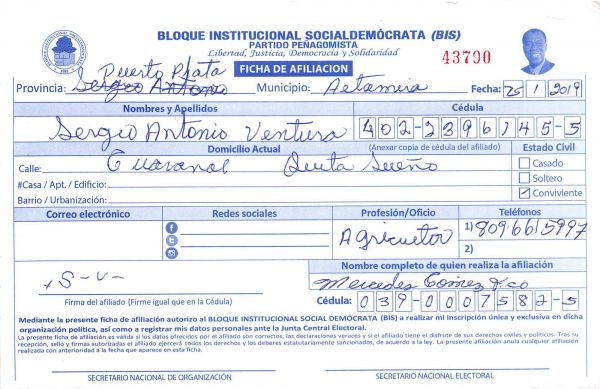 BLOQUE INSTITUCIONAL SOCIALDEMÓCRATA (BIS)
PARTIDO PEÑAGOMISTA
Libertad, Justicia, Democracia y Solidaridad
43790
FICHA DE AFILIACION
Puerto Plata
Provincia: Sergio Antonio Municipio: Altamira Fecha: 25 / 1 / 2019
Nombres y Apellidos Cédula
Sergio Antonio Ventura 402-2396145-5
Domicilio Actual (Anexar copia de cédula del afiliado) Estado Civil
Calle: Quta Sueño Casado
#Casa / Apt. / Edificio: Soltero
Barrio / Urbanización: Conviviente
Correo electrónico Redes sociales Profesión/Oficio Teléfonos
Agricultor 1) 809.6615997
2)
Nombre completo de quien realiza la afiliación
S-V- Mercedes Gomez Fco
Firma del afiliado (Firme igual que en la Cédula) Cédula: 039-0007582-5
Mediante la presente ficha de afiliación autorizo al BLOQUE INSTITUCIONAL SOCIAL DEMÓCRATA (BIS) a realizar mi inscripción única y exclusiva en dicha
organización política, así como a registrar mis datos personales ante la Junta Central Electoral.
La presente ficha de afiliación es válida si las datos ofrecidos por el afiliado son correctos, las declaraciones veraces y si el afiliado tiene el disfrute de sus derechos civiles y políticos. Tras su
recepción, sello y firmas autorizadas el afiliado ejercerá todos los derechos y los deberes estatutariamente sancionados, de acuerdo a la ley. La presente afiliación anula cualquier afiliación
realizada con anterioridad a la fecha que aparece en esta ficha.
SECRETARIO NACIONAL DE ORGANIZACIÓN SECRETARIO NACIONAL ELECTORAL